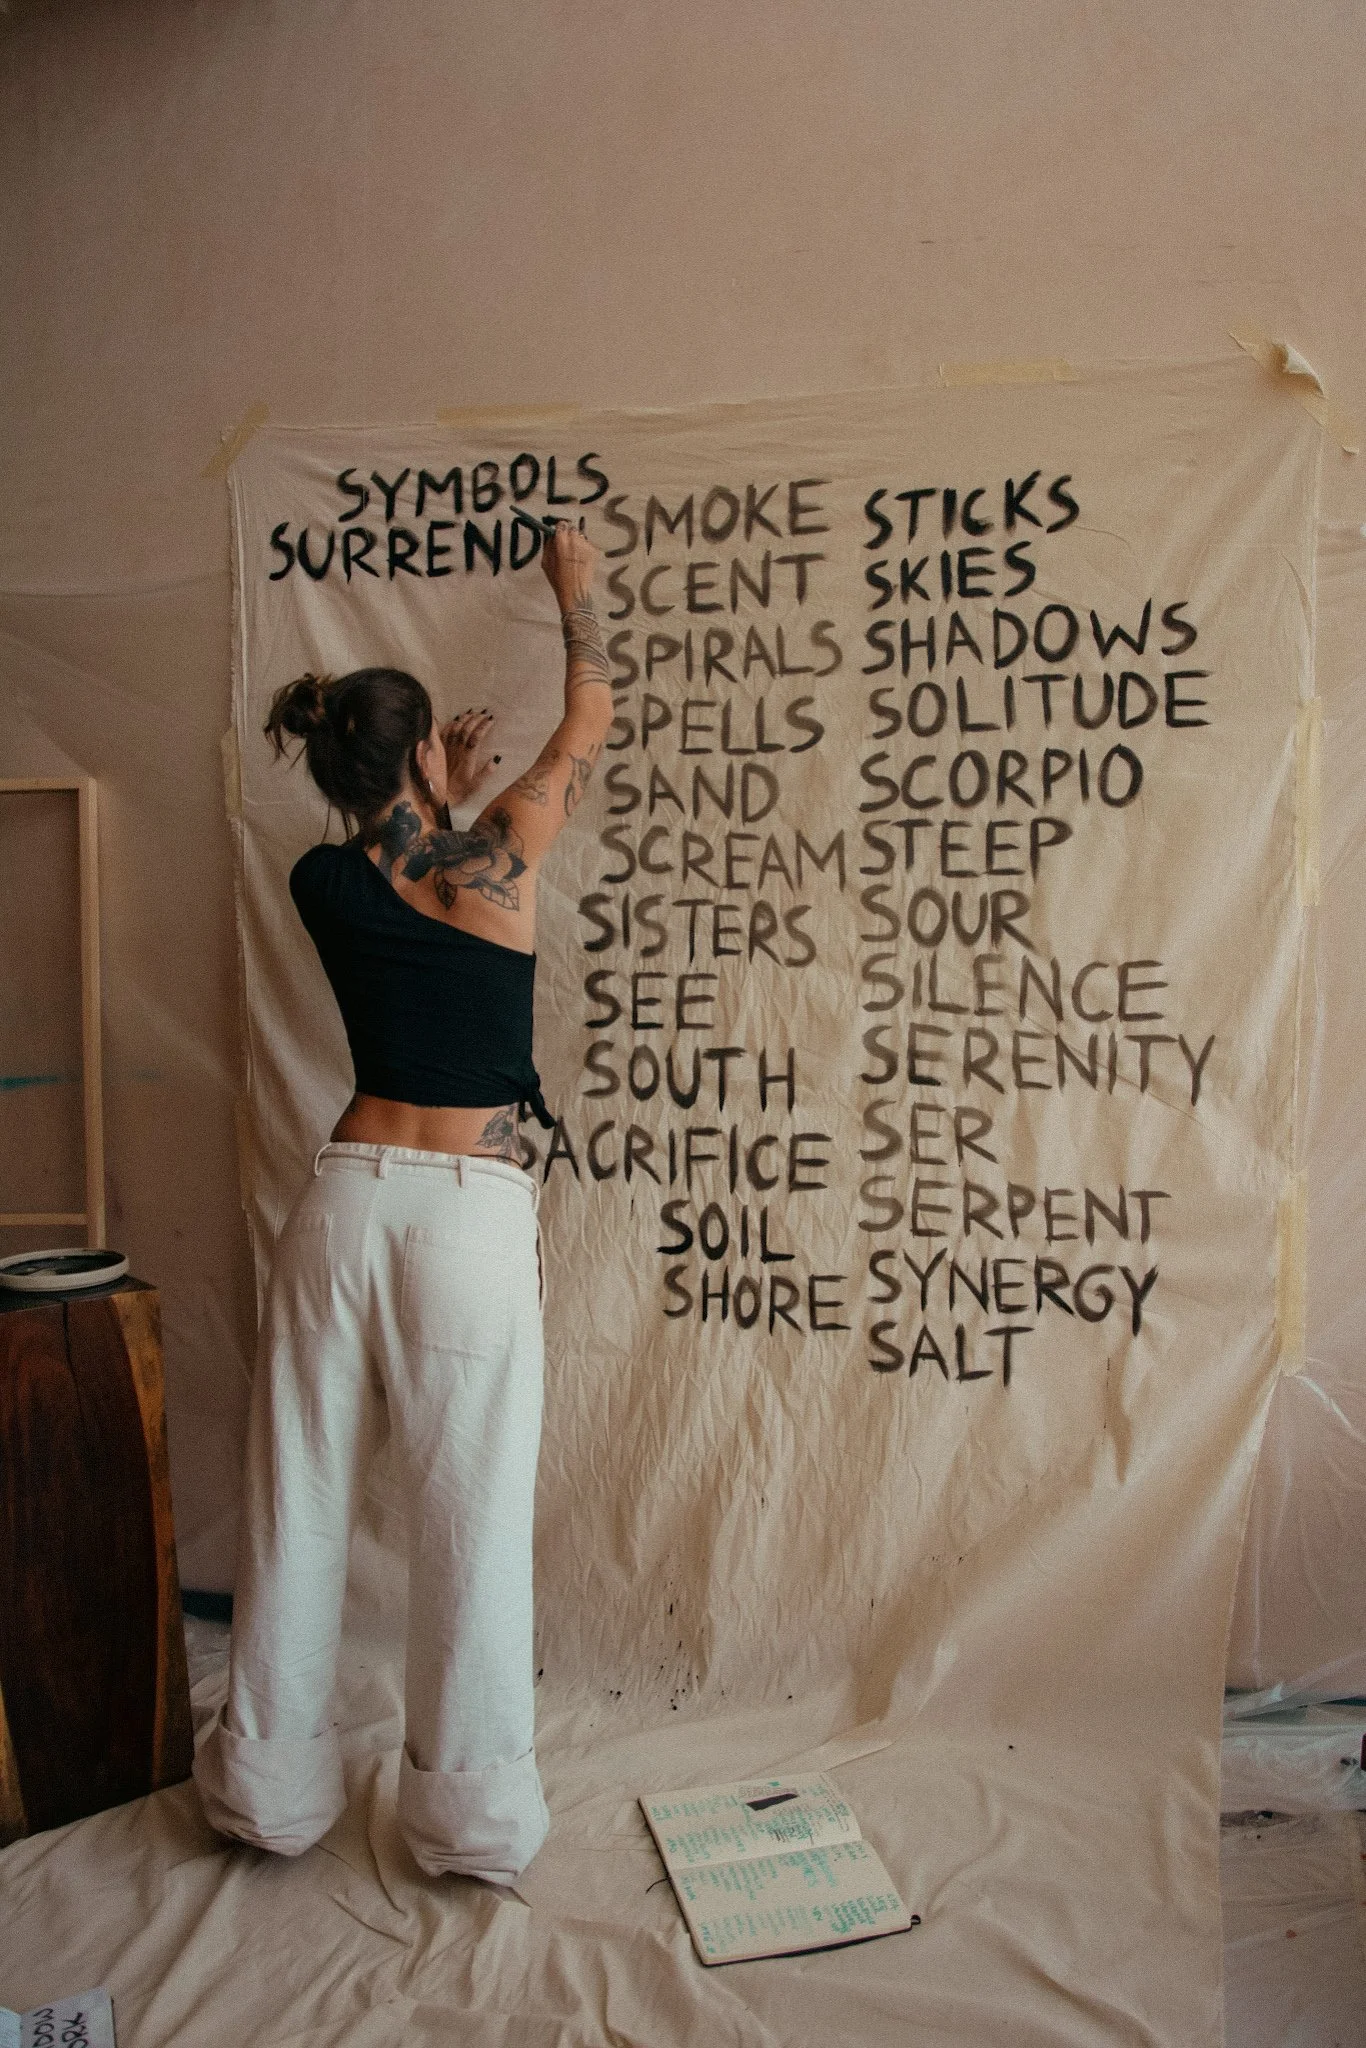 SYMBOLS
SURRENDE
SMOKE
SCENT
SPIRALS
SPELLS
SAND
SCREAM
SISTERS
SEE
SOUTH
SACRIFICE
SOIL
SHORE
STICKS
SKIES
SHADOWS
SOLITUDE
SCORPIO
STEEP
SOUR
SILENCE
SERENITY
SER
SERPENT
SYNERGY
SALT